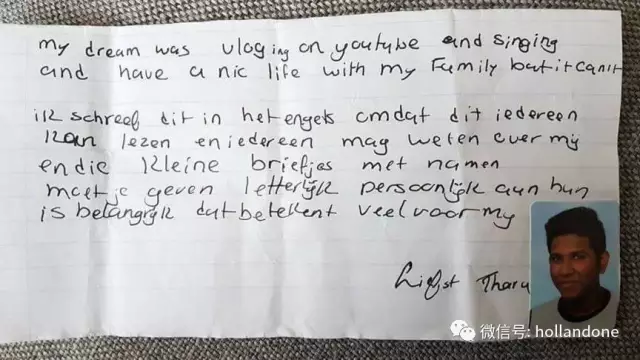 my dream was vloging on youtube and singing
and have a nic life with my Family but it can't
ik schreef dit in het engels omdat dit iedereen
kan lezen en iedereen mag weten over mij
en die kleine briefjes met namen
moet je geven letterlijk persoonlijk aan hun
is belangrijk dat betekent veel voor my
Liefst Tharu
微信号: hollandone